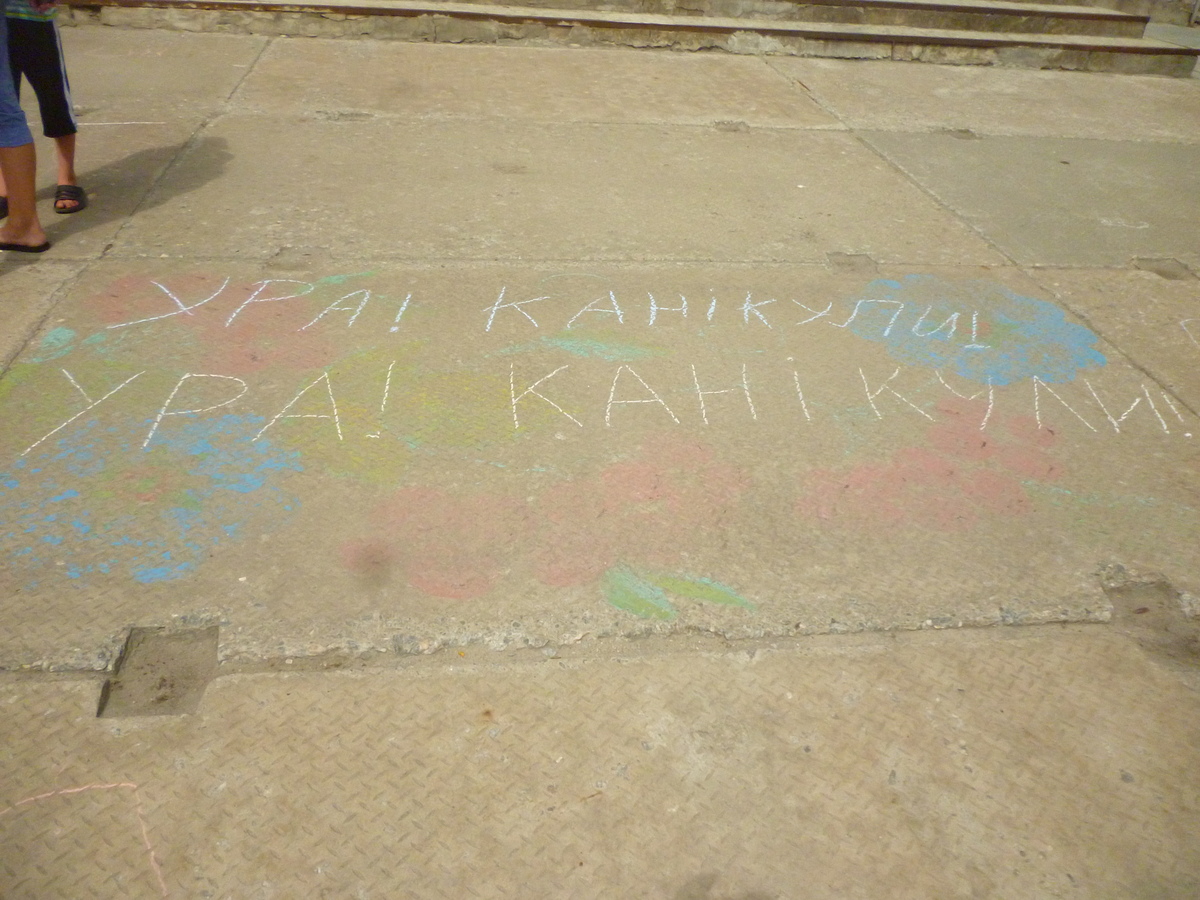 УРА! КАНІКУЛИ!
УРА! КАНІКУЛИ!